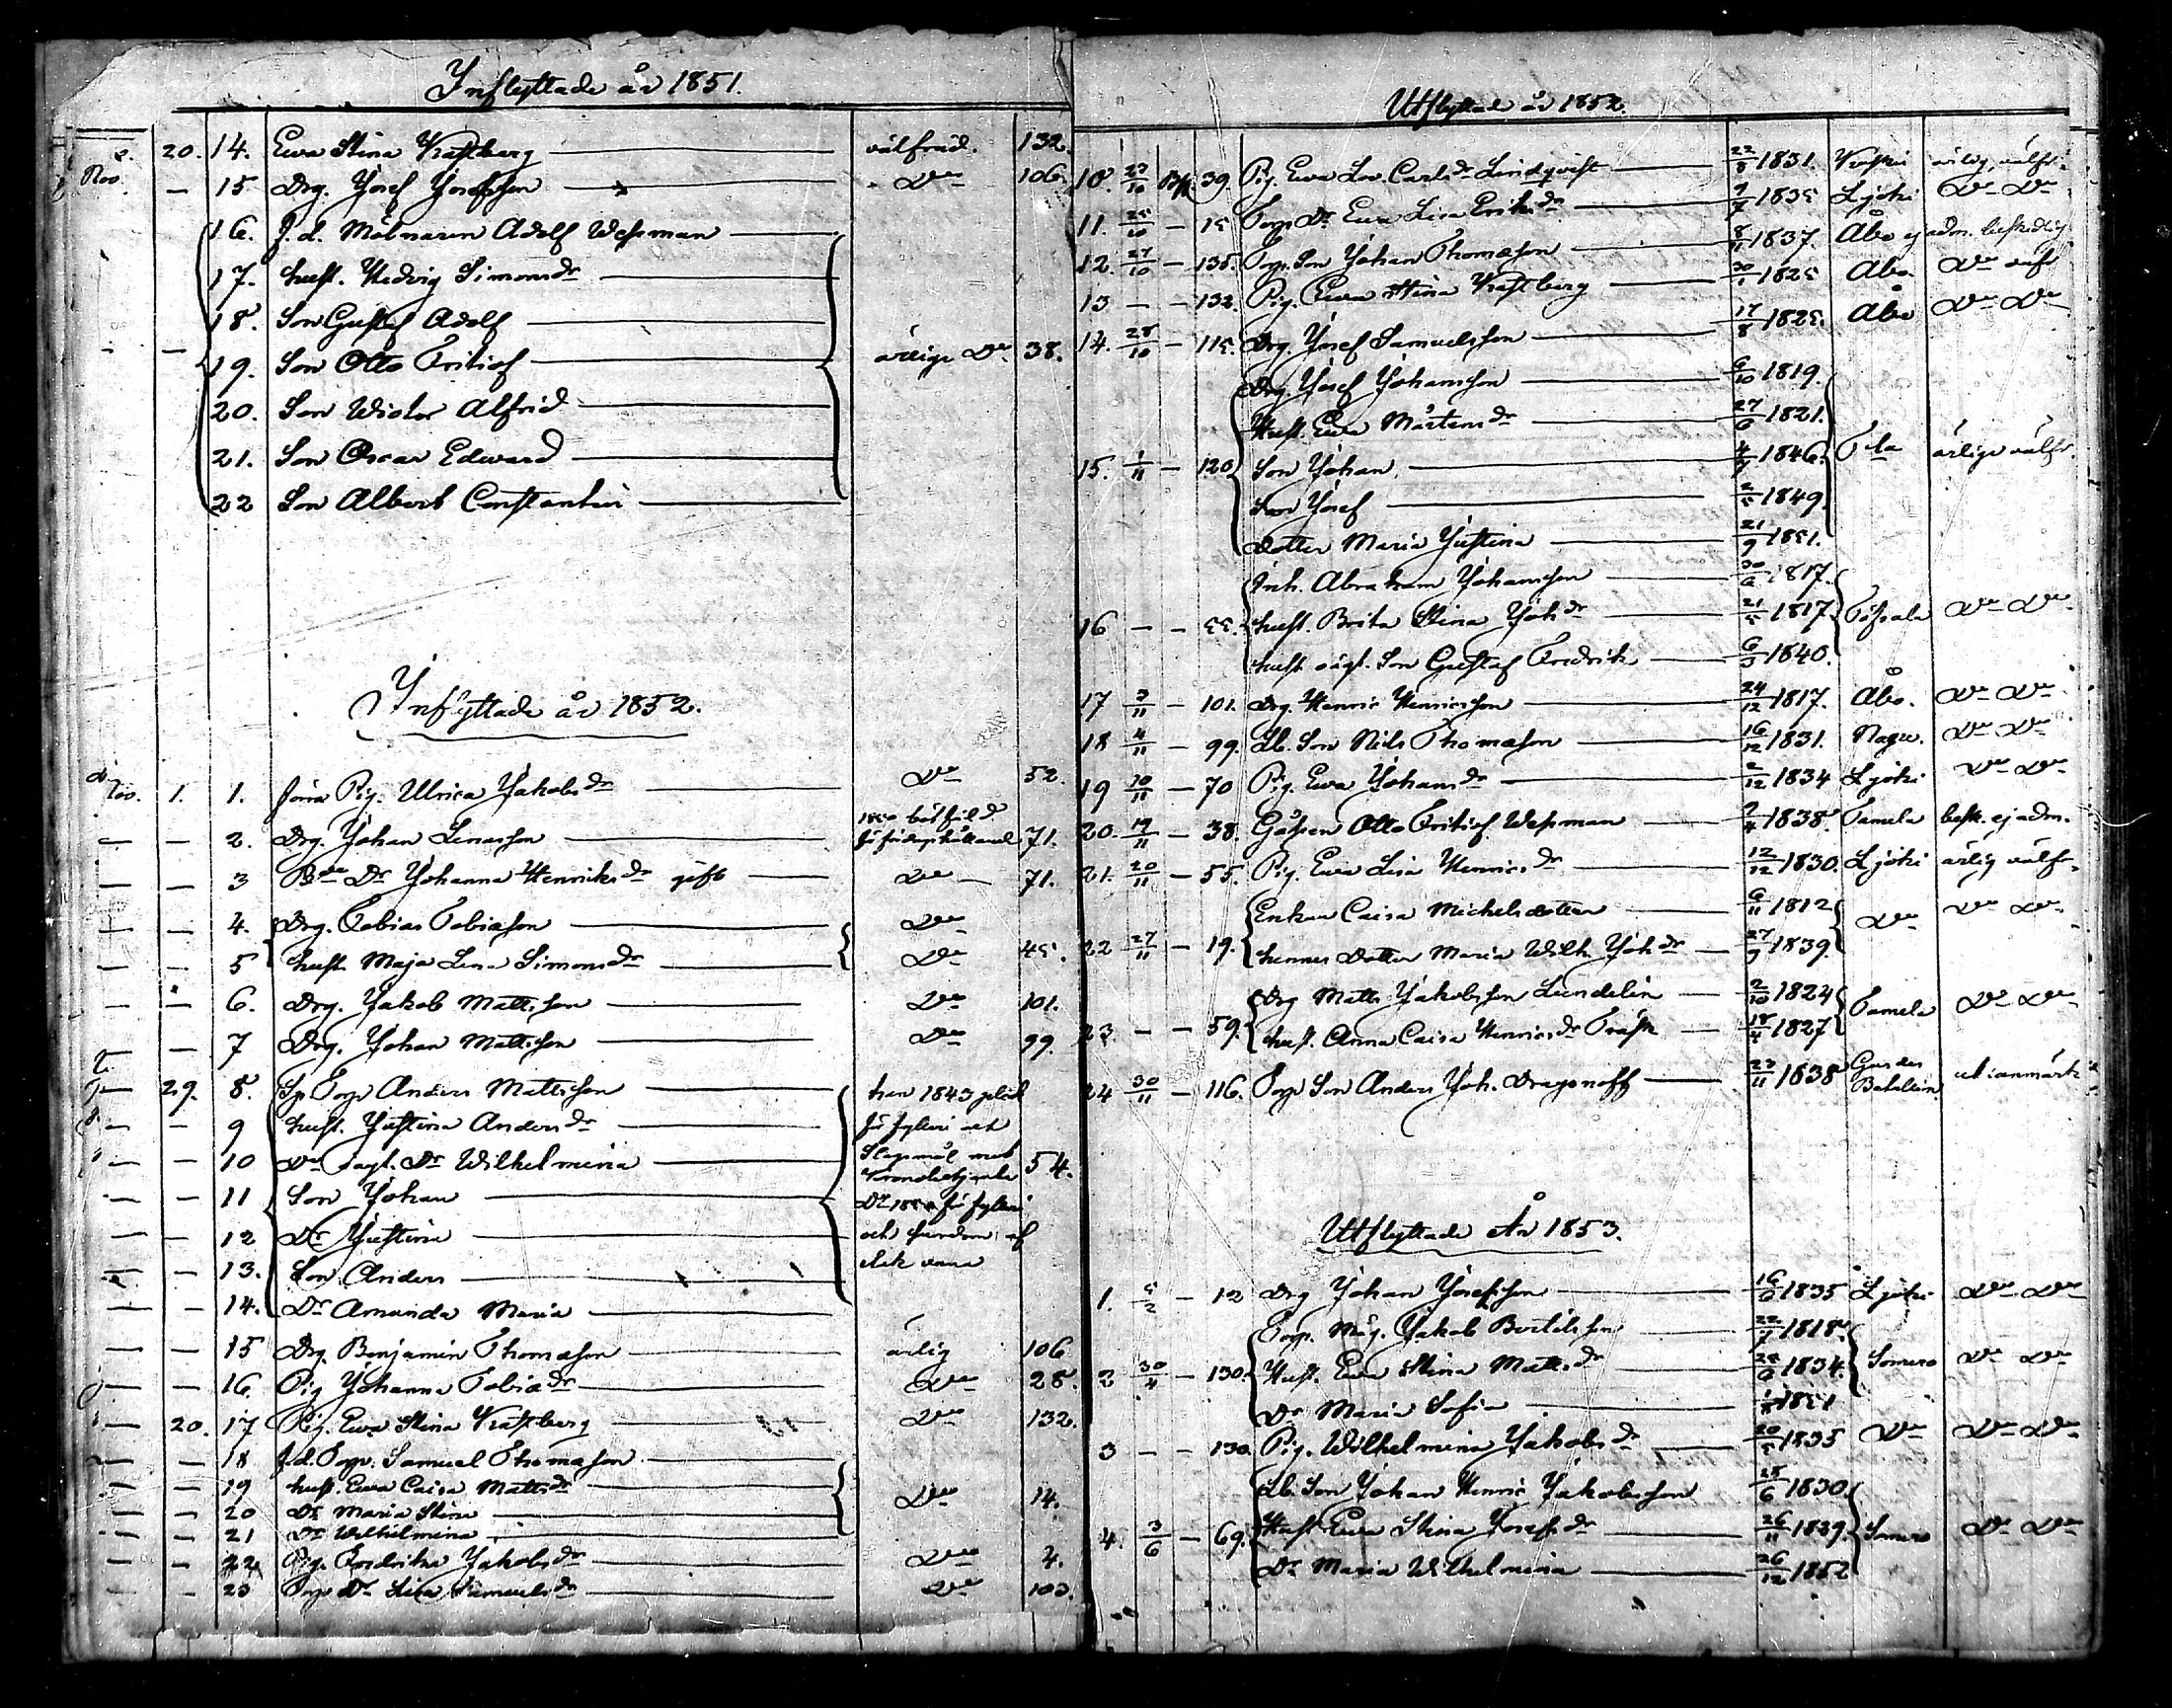 Inflyttade år 1851.
20. 14. Ewa Stina Kraftberg välfräd. 132.
Nov. — 15 Drg. Josef Josefsson Do 106.
16. f.d. Mölnaren Adolf Wessman
17. hust. Hedvig Simonsdr
18. Son Gustaf Adolf
— — 19. Son Otto Fritiof ärlige Do 38.
20. Son Wictor Alfrid
21. Son Oscar Edward
22 Son Albert Constantin
Inflyttade år 1852.
Nov. 1. 1. Pig. Ulrica Jakobsdr Do 52.
— — 2. Drg. Johan Lenasson 71.
— — 3 Dr Johanna Henriksdr gift Do 71.
— — 4. Drg. Tobias Tobiasson Do
— — 5 hust. Maja Lena Simonsdr Do 45.
— — 6. Drg. Jakob Mattsson Do 101.
— 7 Drg. Johan Mattsson Do 99.
29. 8. Sp. Torp. Anders Mattsson har 1843 plikt
— — 9 hust. Justina Andersdr för fylleri och
— — 10 Do oägt. Dr Wilhelmina Slagsmål med 54.
— — 11 Son Johan
— — 12 Dr Justina och
— — 13. Son Anders
— — 14. Dr Amanda Maria
— — 15 Drg. Benjamin Thomasson ärlig 106
— — 16. Pig Johanna Tobiasdr Do 28.
— 20. 17 Pig. Ewa Stina Kraftberg Do 132.
— — 18 f.d. Torp. Samuel Thomasson
— — 19 hust. Ewa Caisa Mattsdr
— — 20 Dr Maria Stina Do 14.
— — 21 Dr Wilhelmina
— — 22 Pig. Fredrika Jakobsdr Do 4.
— — 23 Torp Dr Lisa Samuelsdr Do 103.
Utflyttade år 1852.
10. 27/10 39. Pig. Ewa Lov. Carlsdr Lindqvist 22/8 1831. ärlig, välfr.
11. 25/10 — 15 Torp. Dr Ewa Lisa Eriksdr 1835 Ljoki Do Do
12. 27/10 — 135. Torp. Son Johan Thomasson 1837. Åbo ej adm. beskedlig
13 — — 132. Pig. Ewa Stina Kraftberg 1825 Åbo. Do
14. 28/10 — 115. Drg. Josef Samuelsson 17/8 1825. Åbo Do Do
Drg. Josef Johansson 6/10 1819.
Hust. Ewa Mårtensdr 27/6 1821.
15. 1/11 — 120 Son Johan 1846. Tla ärlige välfr.
Son Josef 1849.
Dotter Maria Justina 21/9 1851.
Inh. Abraham Johansson 1817.
16 — — 55. hust. Brita Stina Johdr 1817. Töfsala Do Do
hust. oägt. Son Gustaf Fredrik 1840.
17 3/11 — 101. Drg. Henric Henricsson 24/12 1817. Åbo. Do Do
18 4/11 — 99. Lb. Son Nils Thomasson 16/12 1831. Nagu. Do Do
19 10/11 — 70 Pig. Ewa Johansdr 2/12 1834 Ljoki Do Do
20. 19/11 — 38. Gossen Otto Fritiof Wessman 2/4 1838. Tamela besk. ej adm.
21. 20/11 — 55. Pig. Ewa Lisa Henricsdr 12/12 1830. Ljoki ärlig välfr.
Enkan Caisa Michelsdotter 6/11 1812
22 27/11 — 19. hennes Dotter Maria Wilh. Johdr 27/9 1839. Do Do Do
Drg Matts Jakobsson Lundelin 2/10 1824
23. — — 59. hust. Anna Caisa Henricsdr Träsk 18/4 1827 Tamela Do Do
24 30/11 — 116. Torp Son Anders Joh. Dragonoff 23/11 1838 Gardes Bataljon utan anmärk
Utflyttade År 1853.
1. 5/2 — 12 Drg Johan Josefsson 1835 Ljoki Do Do
Torp. Måg. Jakob Bertilsson 1818.
2 30/4 — 130. Hust. Ewa Stina Mattsdr 1834. Somero Do Do
Dr Maria Sofia 1851
3 — — 130. Pig. Wilhelmina Jakobsdr 20/5 1835 Do Do Do
Lb. Son Johan Henric Jakobsson 25/6 1830
4. 3/6 — 69. Hust. Ewa Stina Josefsdr 26/11 1829. Somero Do Do
Dr Maria Wilhelmina 26/12 1852